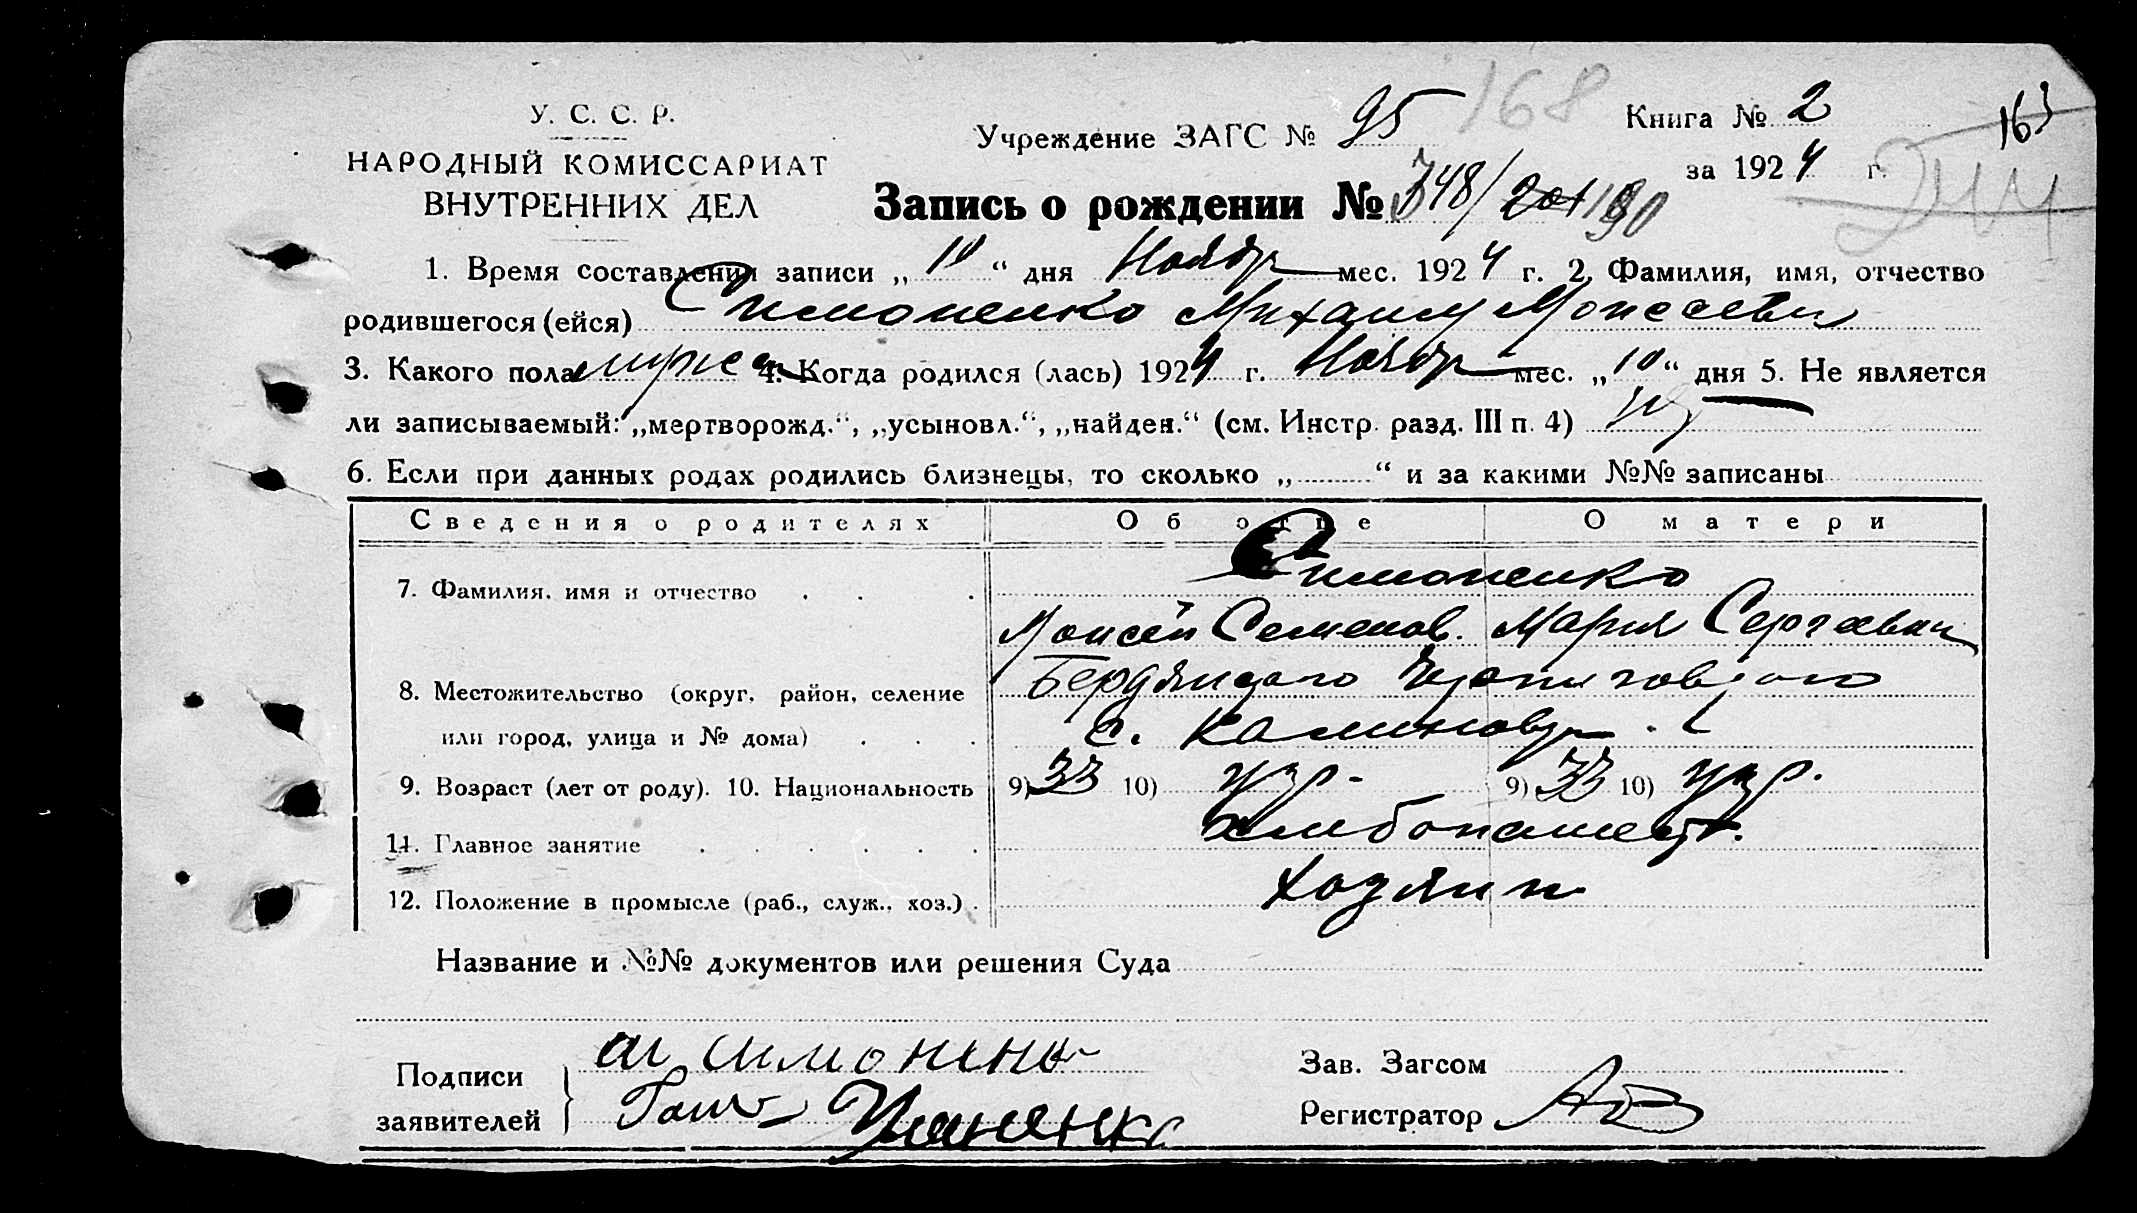 У. С. С. Р.
НАРОДНЫЙ КОМИССАРИАТ
ВНУТРЕННИХ ДЕЛ
Учреждение ЗАГС № 95 168
Книга № 2 163
за 1924 г. 244
Запись о рождении № 348/
1. Время составления записи „10“ дня Ноябр мес. 1924 г. 2. Фамилия, имя, отчество
родившегося (ейся) Симоненко Михаил Моисеевич
3. Какого пола мужс 4. Когда родился (лась) 1924 г. Ноябр мес. „10“ дня 5. Не является
ли записываемый: „мертворожд.“, „усыновл.“, „найден.“ (см. Инстр. разд. III п. 4)
6. Если при данных родах родились близнецы, то сколько „ “ и за какими №№ записаны
Сведения о родителях Об отце О матери
7. Фамилия, имя и отчество Симоненко
Моисей Семенов. Мария Сергеевна
8. Местожительство (округ, район, селение Бердянского
или город, улица и № дома) с. Калиновка
9. Возраст (лет от роду). 10. Национальность 9) 33 10) укр. 9) 33 10) укр.
11. Главное занятие хлебопашест.
12. Положение в промысле (раб., служ., хоз.) Хозяин
Название и №№ документов или решения Суда
Подписи
заявителей
Симоненко
Зав. Загсом
Регистратор